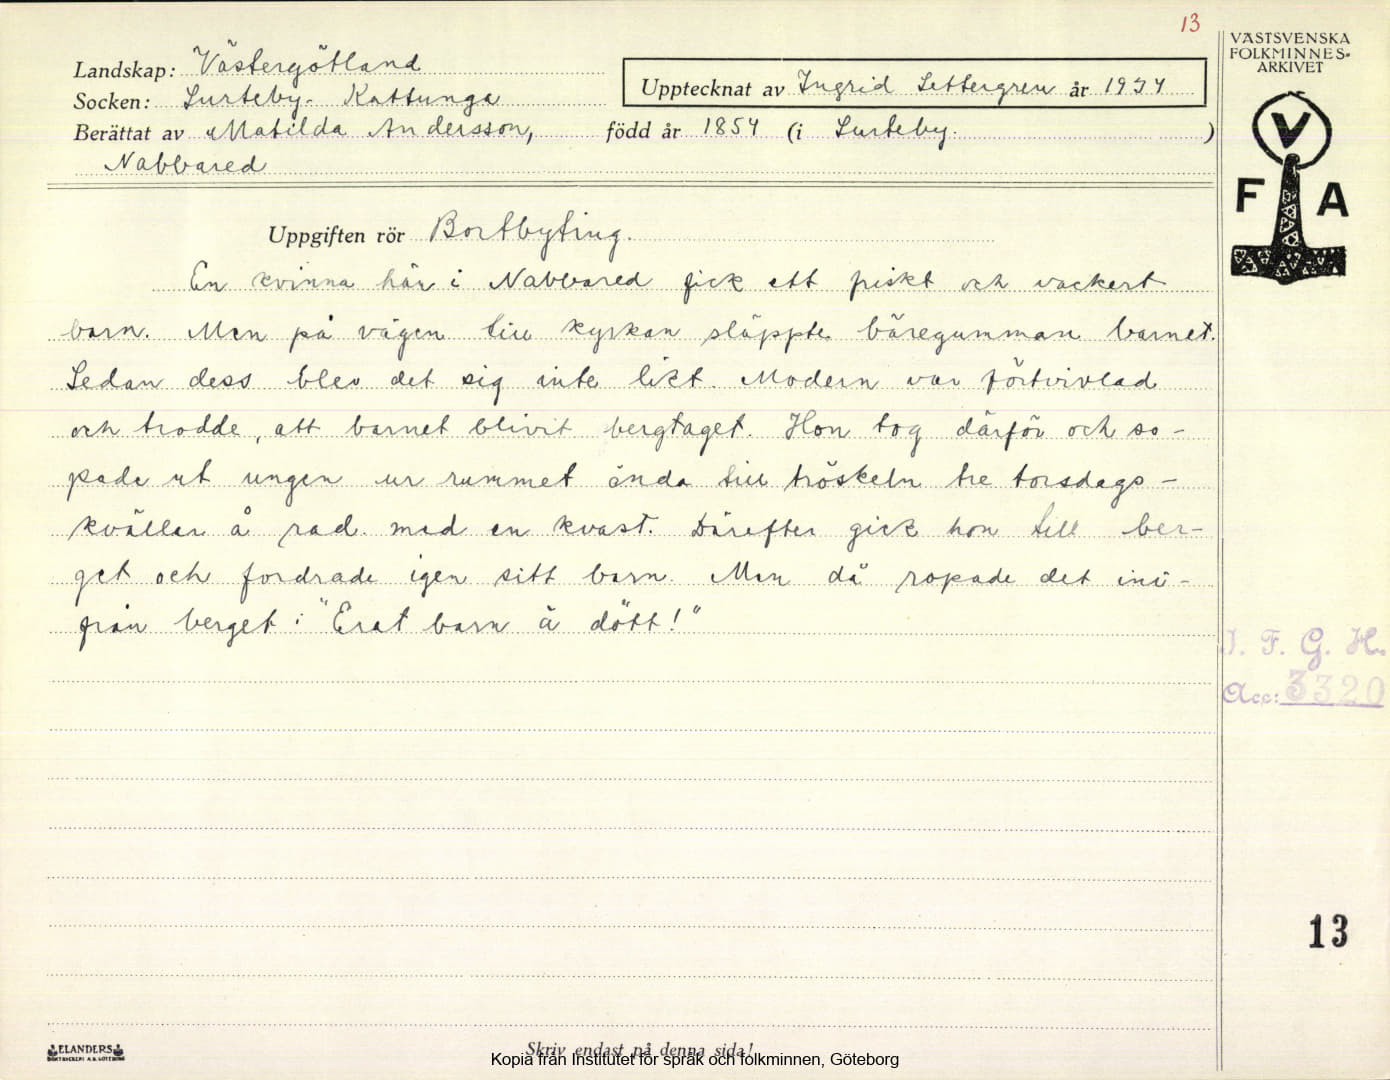 13
VÄSTSVENSKA
FOLKMINNES-
ARKIVET
Landskap: Västergötland
Upptecknat av Ingrid Settergren år 1934
Socken: Surteby-Kattunga
Berättat av Matilda Andersson, född år 1854 (i Surteby. )
Nabbared
V
F A
Uppgiften rör Bortbyting.
En kvinna här i Nabbared fick ett friskt och vackert
barn. Men på vägen till kyrkan släppte bäregumman barnet.
Sedan dess blev det sig inte likt. Modern var förtvivlad
och trodde, att barnet blivit bergtaget. Hon tog därför och so-
pade ut ungen ur rummet ända till tröskeln tre torsdags-
kvällar å rad med en kvast. Därefter gick hon till ber-
get och fordrade igen sitt barn. Men då ropade det ini-
från berget: "Erat barn ä dött!"
I. F. G. H.
Acc: 3320
13
ELANDERS
BOKTRYCKERI A.B. GÖTEBORG
Skriv endast på denna sida!
Kopia från Institutet för språk och folkminnen, Göteborg